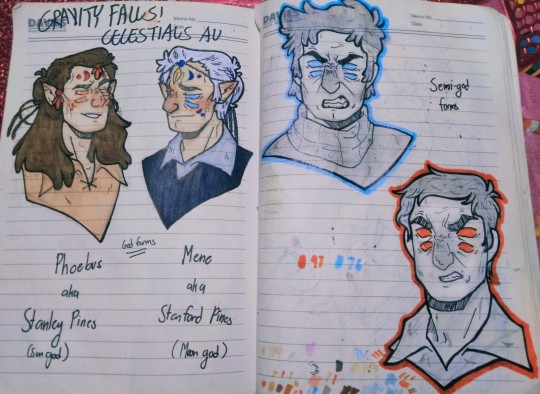 GRAVITY FALLS!
CELESTIALS AU
Memo No.
God forms
Phoebus
aka
Stanley Pines
(Sun god)
Mene
aka
Stanford Pines
(Moon god)
Memo No.
Date
Semi-god
forms
97 76